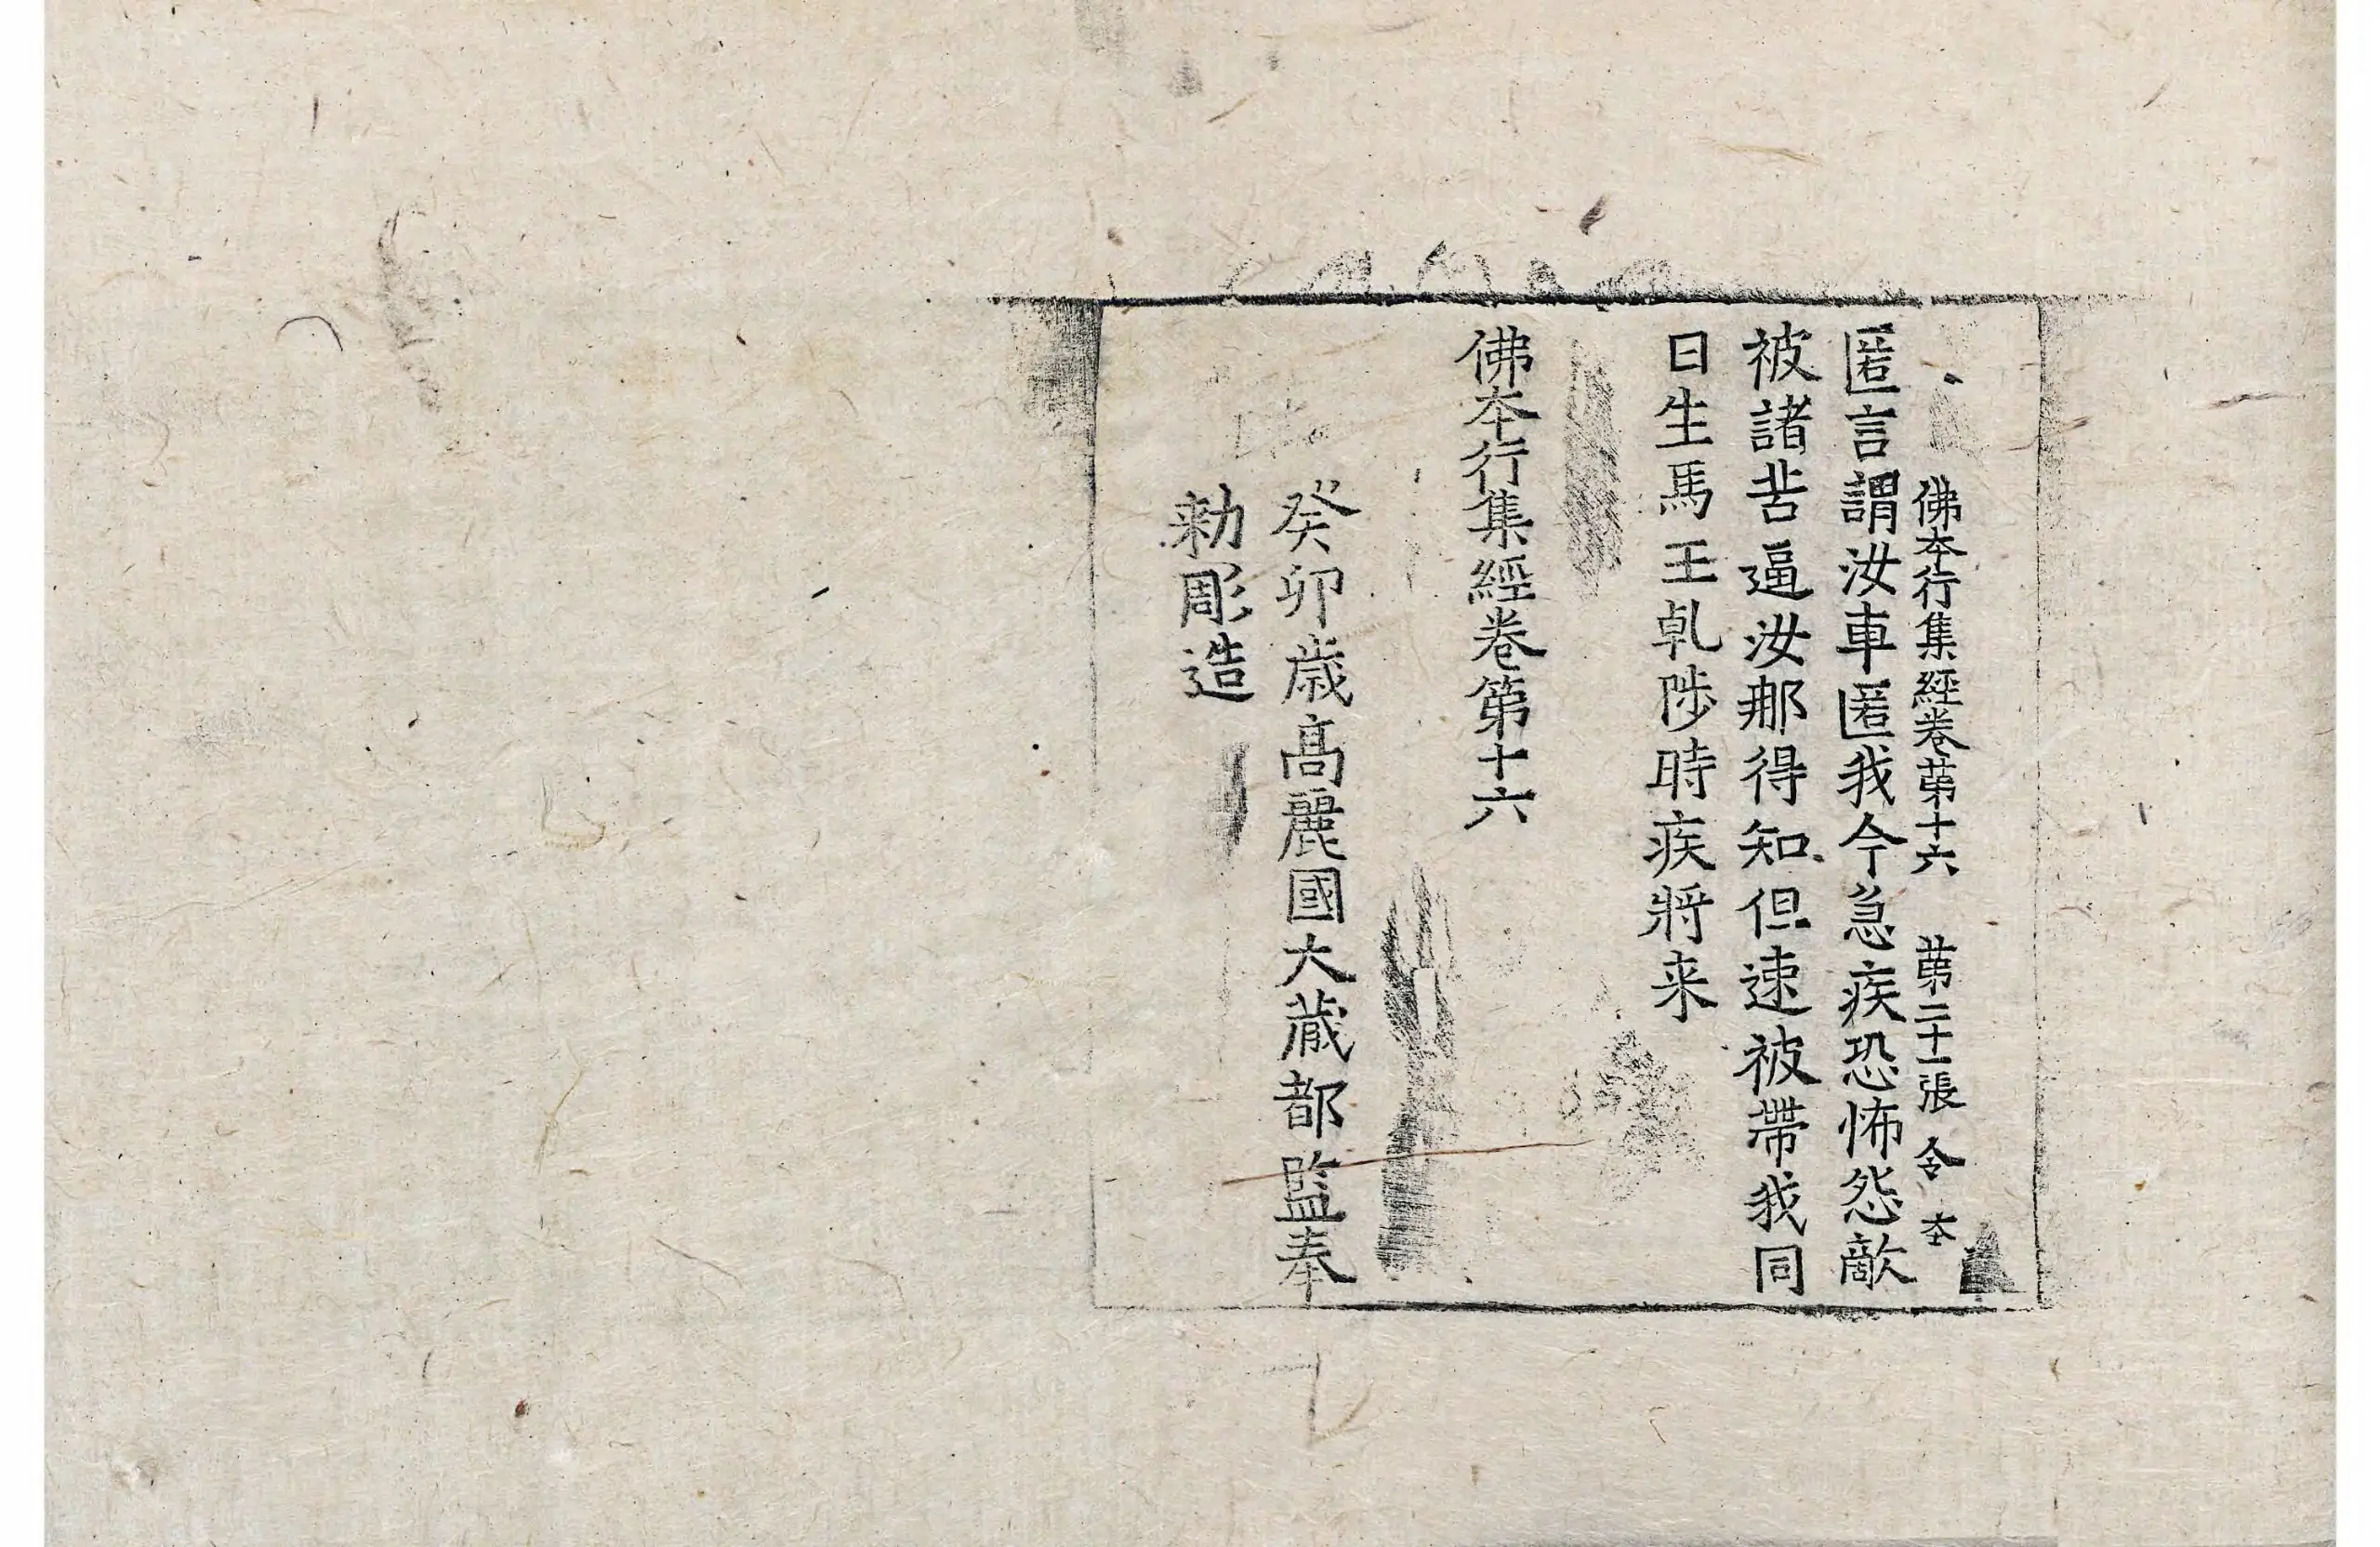 佛本行集經卷第十六 第二十一張 令 本
匿言謂汝車匿我今急疾恐怖怨敵
被諸苦逼汝那得知但速被帶我同
日生馬王乹陟時疾將来
佛本行集經卷第十六
癸卯歲高麗國大藏都監奉
勑彫造